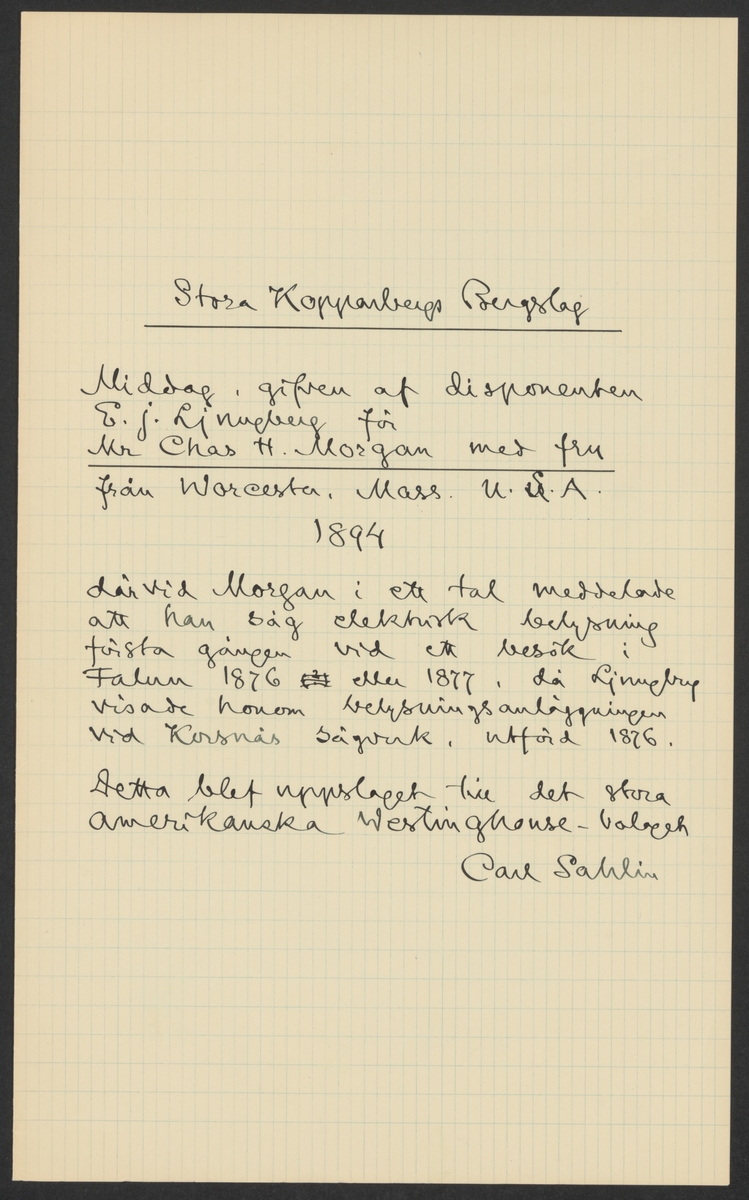 Stora Kopparbergs Bergslag
Middag, gifven af disponenten
E. J. Ljungberg för
Mr Chas H. Morgan med fru
från Worcester, Mass. U.S.A.
1894
därvid Morgan i ett tal meddelade
att han såg elektrisk belysning
första gången vid ett besök i
Falun 1876 eller 1877, då Ljungberg
visade honom belysningsanläggningen
vid Korsnäs sågverk, utförd 1876.
Detta blef uppslaget till det stora
amerikanska Westinghouse-bolaget
Carl Sahlin